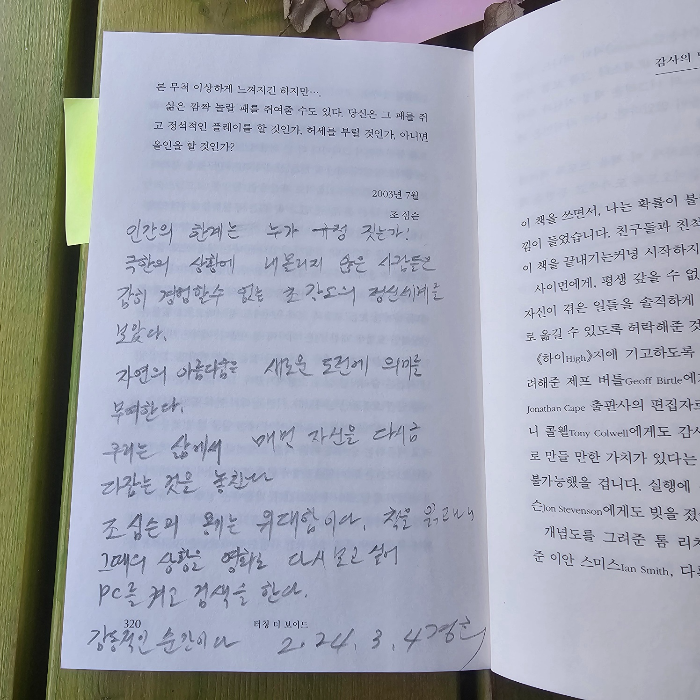 른 무척 이상하게 느껴지긴 하지만….
삶은 깜짝 놀랄 패를 쥐여줄 수도 있다. 당신은 그 패를 쥐
고 정석적인 플레이를 할 것인가, 허세를 부릴 것인가, 아니면
올인을 할 것인가?
2003년 7월
조 심슨
인간의 한계는 누가 규정 짓는가!
극한의 상황에 내몰리지 않은 사람들은
감히 경험할수 없는 초 각도의 정신세계를
보았다.
자연의 아름다움은 새로운 도전에 의미를
부여한다.
우리는 삶에서 매번 자신을 다시금
다잡는 것을 놓친다
조 심슨의 용기는 위대함이다. 책을 읽고나니
그때의 상황을 영화로 다시 보고 싶어
PC를 켜고 검색을 한다.
감동적인 순간이다 2.24.3.4
320
터칭 더 보이드
감사의
이 책을 쓰면서, 나는 확률이 불
낌이 들었습니다. 친구들과 친척
이 책을 끝내기는커녕 시작하지
사이먼에게, 평생 갚을 수 없
자신이 겪은 일들을 솔직하게
로 옮길 수 있도록 허락해준 것
《하이High》지에 기고하도록
려해준 제프 버틀Geoff Birtle에
Jonathan Cape 출판사의 편집자
니 콜웰Tony Colwell에게도 감사
로 만들 만한 가치가 있다는
불가능했을 겁니다. 실행에
슨Jon Stevenson에게도 빚을 졌
개념도를 그려준 톰 리치
준 이안 스미스Ian Smith, 다